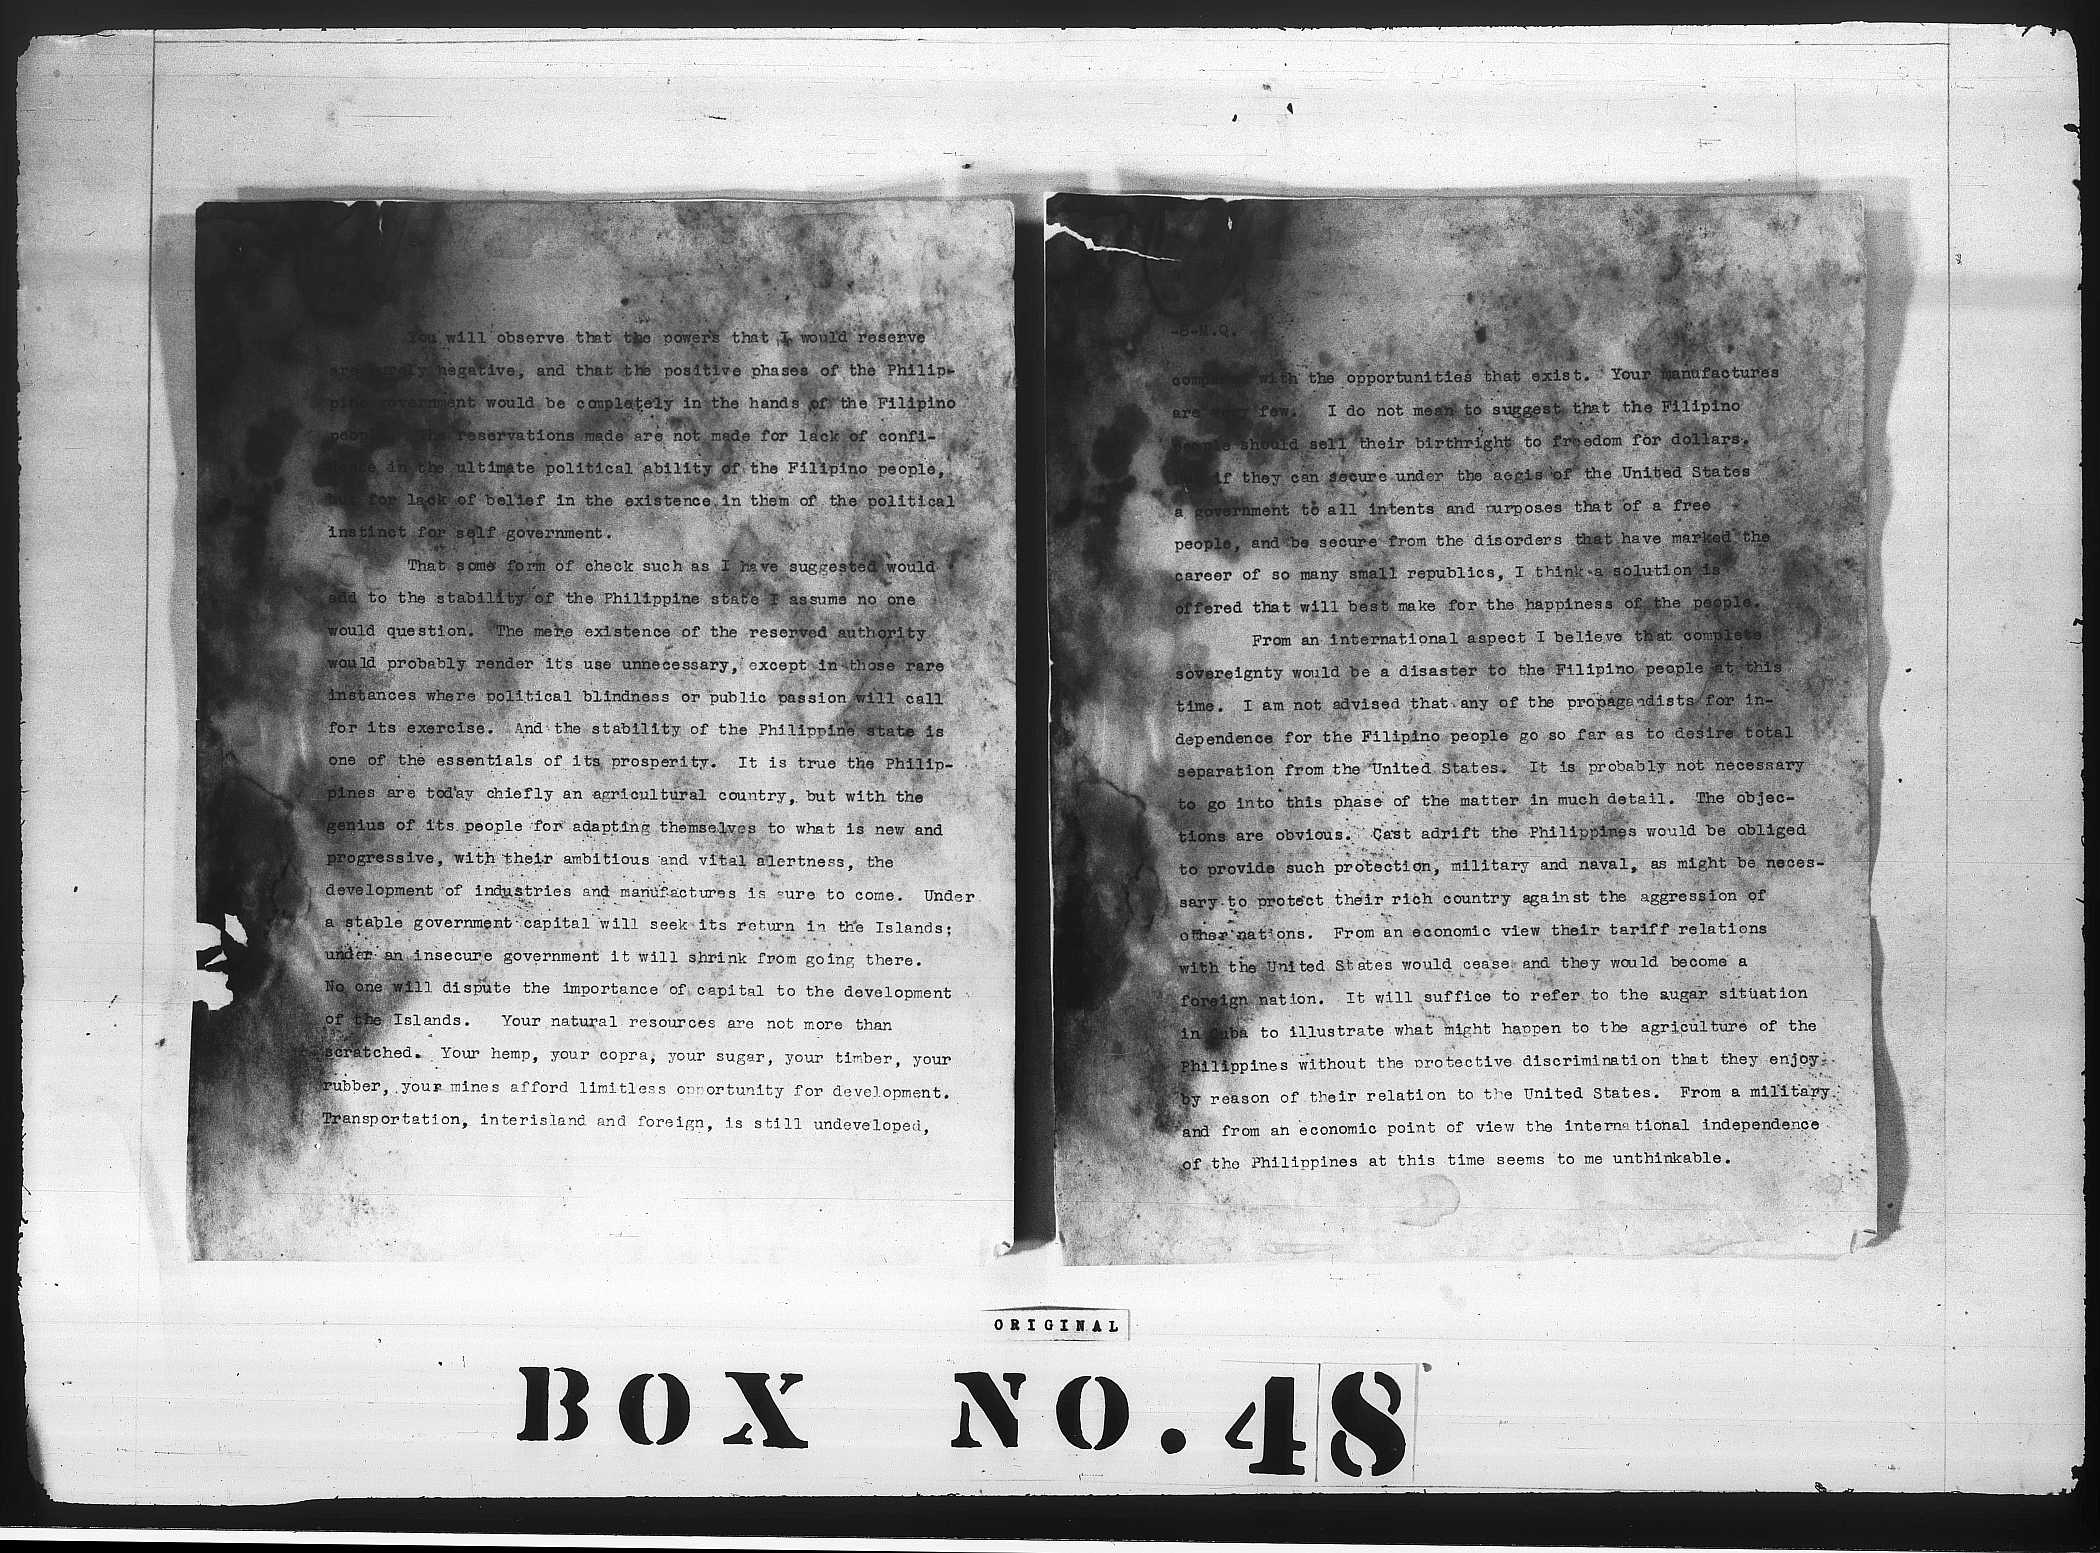 You will observe that the powers that I would reserve
are purely negative, and that the positive phases of the Philip-
pine government would be completely in the hands of the Filipino
people. The reservations made are not made for lack of confi-
dence in the ultimate political ability of the Filipino people,
but for lack of belief in the existence in them of the political
instinct for self government.
That some form of check such as I have suggested would
add to the stability of the Philippine state I assume no one
would question. The mere existence of the reserved authority
would probably render its use unnecessary, except in those rare
instances where political blindness or public passion will call
for its exercise. And the stability of the Philippine state is
one of the essentials of its prosperity. It is true the Philip-
pines are today chiefly an agricultural country, but with the
genius of its people for adapting themselves to what is new and
progressive, with their ambitious and vital alertness, the
development of industries and manufactures is sure to come. Under
a stable government capital will seek its return in the Islands;
under an insecure government it will shrink from going there.
No one will dispute the importance of capital to the development
of the Islands. Your natural resources are not more than
scratched. Your hemp, your copra, your sugar, your timber, your
rubber, your mines afford limitless opportunity for development.
Transportation, interisland and foreign, is still undeveloped,
-8-M.Q.
compared with the opportunities that exist. Your manufactures
are very few. I do not mean to suggest that the Filipino
people should sell their birthright to freedom for dollars.
if they can secure under the aegis of the United States
a government to all intents and purposes that of a free
people, and be secure from the disorders that have marked the
career of so many small republics, I think a solution is
offered that will best make for the happiness of the people.
From an international aspect I believe that complete
sovereignty would be a disaster to the Filipino people at this
time. I am not advised that any of the propagandists for in-
dependence for the Filipino people go so far as to desire total
separation from the United States. It is probably not necessary
to go into this phase of the matter in much detail. The objec-
tions are obvious. Cast adrift the Philippines would be obliged
to provide such protection, military and naval, as might be neces-
sary to protect their rich country against the aggression of
other nations. From an economic view their tariff relations
with the United States would cease and they would become a
foreign nation. It will suffice to refer to the sugar situation
in Cuba to illustrate what might happen to the agriculture of the
Philippines without the protective discrimination that they enjoy
by reason of their relation to the United States. From a military
and from an economic point of view the international independence
of the Philippines at this time seems to me unthinkable.
ORIGINAL
BOX NO. 48